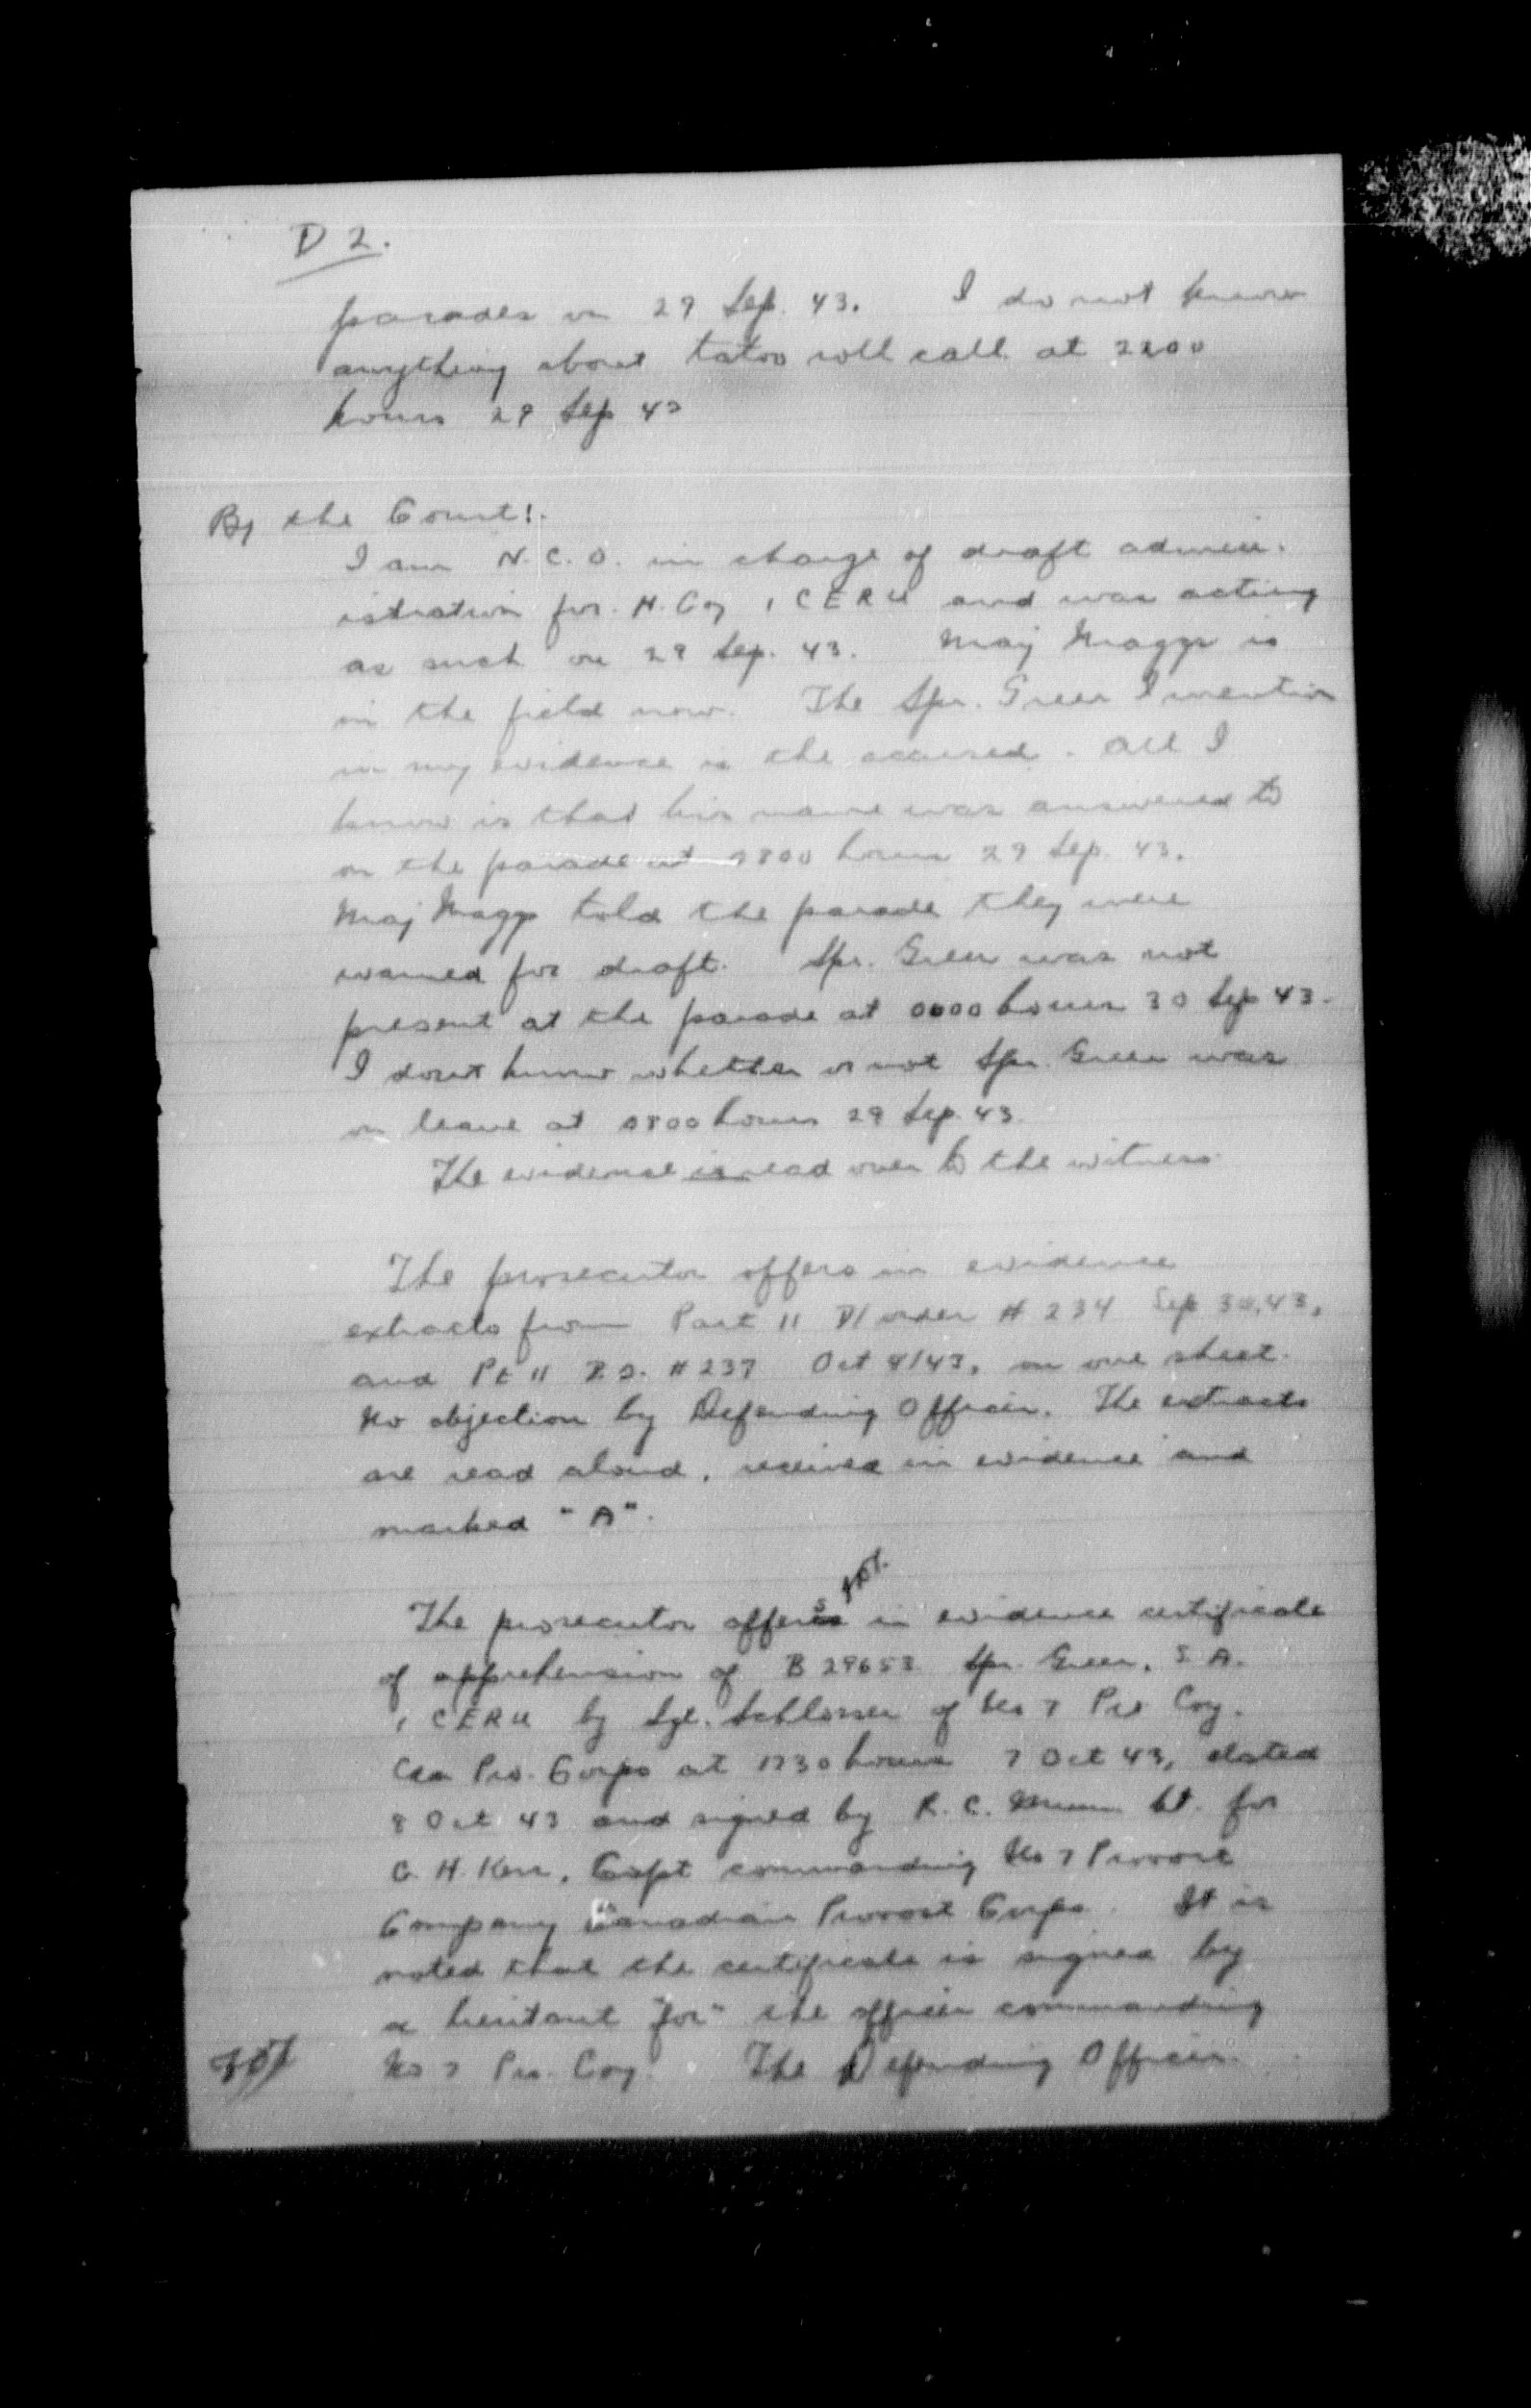 D 2.
parades on 29 Sep. 43. I do not know
anything about tatoo roll call at 2200
hours 29 Sep 43
By the Court:
I am N.C.O. in charge of draft admin-
istration for H. Coy 1 CERU and was acting
as such on 29 Sep. 43. Maj Maggs is
in the field now. The Spr. Green I mention
in my evidence is the accused. All I
know is that his name was answered to
on the parade at 0800 hours 29 Sep. 43.
Maj Maggs told the parade they were
warned for draft. Spr. Green was not
present at the parade at 0000 hours 30 Sep 43.
I dont know whether or not Spr. Green was
on leave at 0800 hours 29 Sep. 43.
The evidence is read over to the witness
The prosecutor offers in evidence
extracts from Part II D/ order # 234 Sep 30, 43,
and Pt II D.O. # 237 Oct 8/43, on one sheet.
No objection by Defending Officer. The extracts
are read aloud, received in evidence and
marked "A".
The prosecutor offers in evidence certificate
of apprehension of B 29653 Spr. Green, S.A.
1 CERU by Sgt. Schlosser of No 7 Pro Coy.
Cdn Pro. Corps at 1730 hours 7 Oct 43, dated
8 Oct 43 and signed by R. C. Lt. for
C. H. Kerr, Capt commanding No 7 Provost
Company Canadian Provost Corps. It is
noted that the certificate is signed by
a lieutant "for" the officer commanding
No 7 Pro. Coy. The Defending Officer